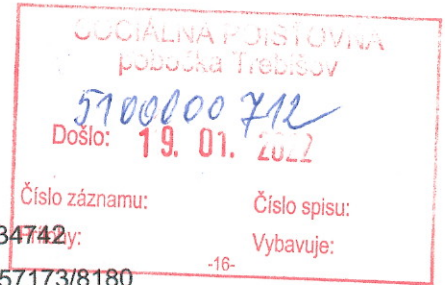 SOCIÁLNA POISŤOVŇA
pobočka Trebišov
5100000712
Došlo: 19. 01. 2022
Číslo záznamu: Číslo spisu:
34742
Prílohy: Vybavuje:
-16-
57173/8180